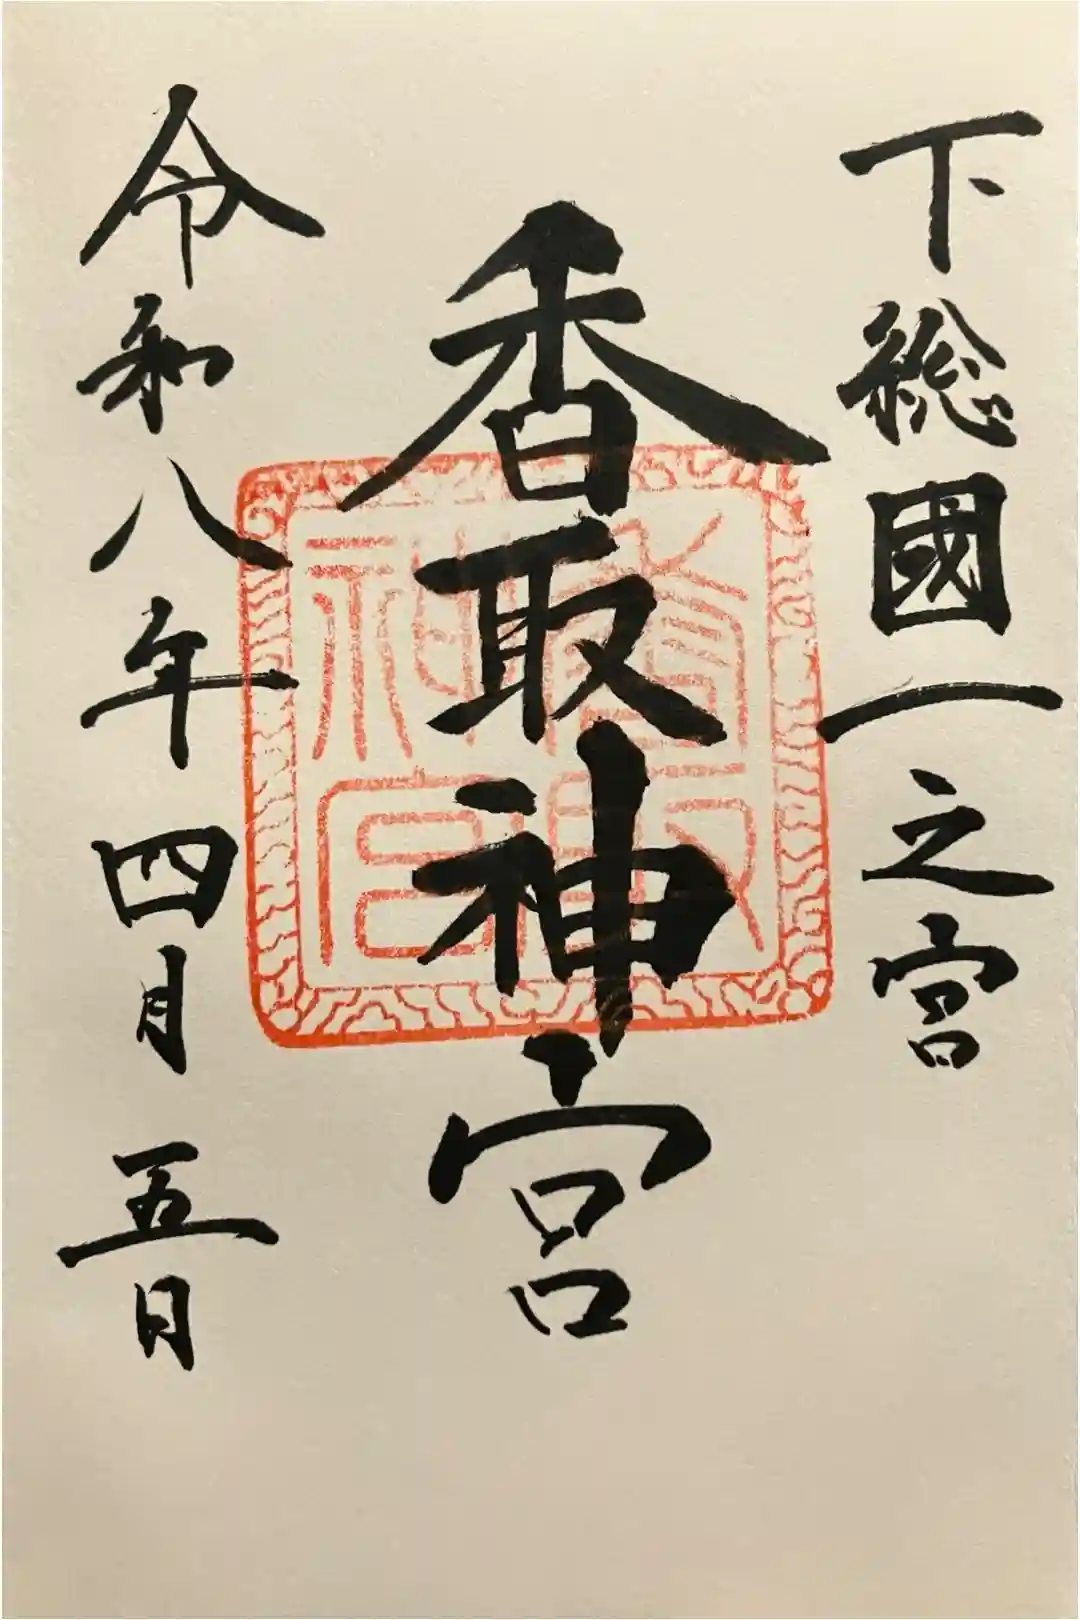 下総國一之宮
香取神宮
令和八年四月五日
香取
神宮